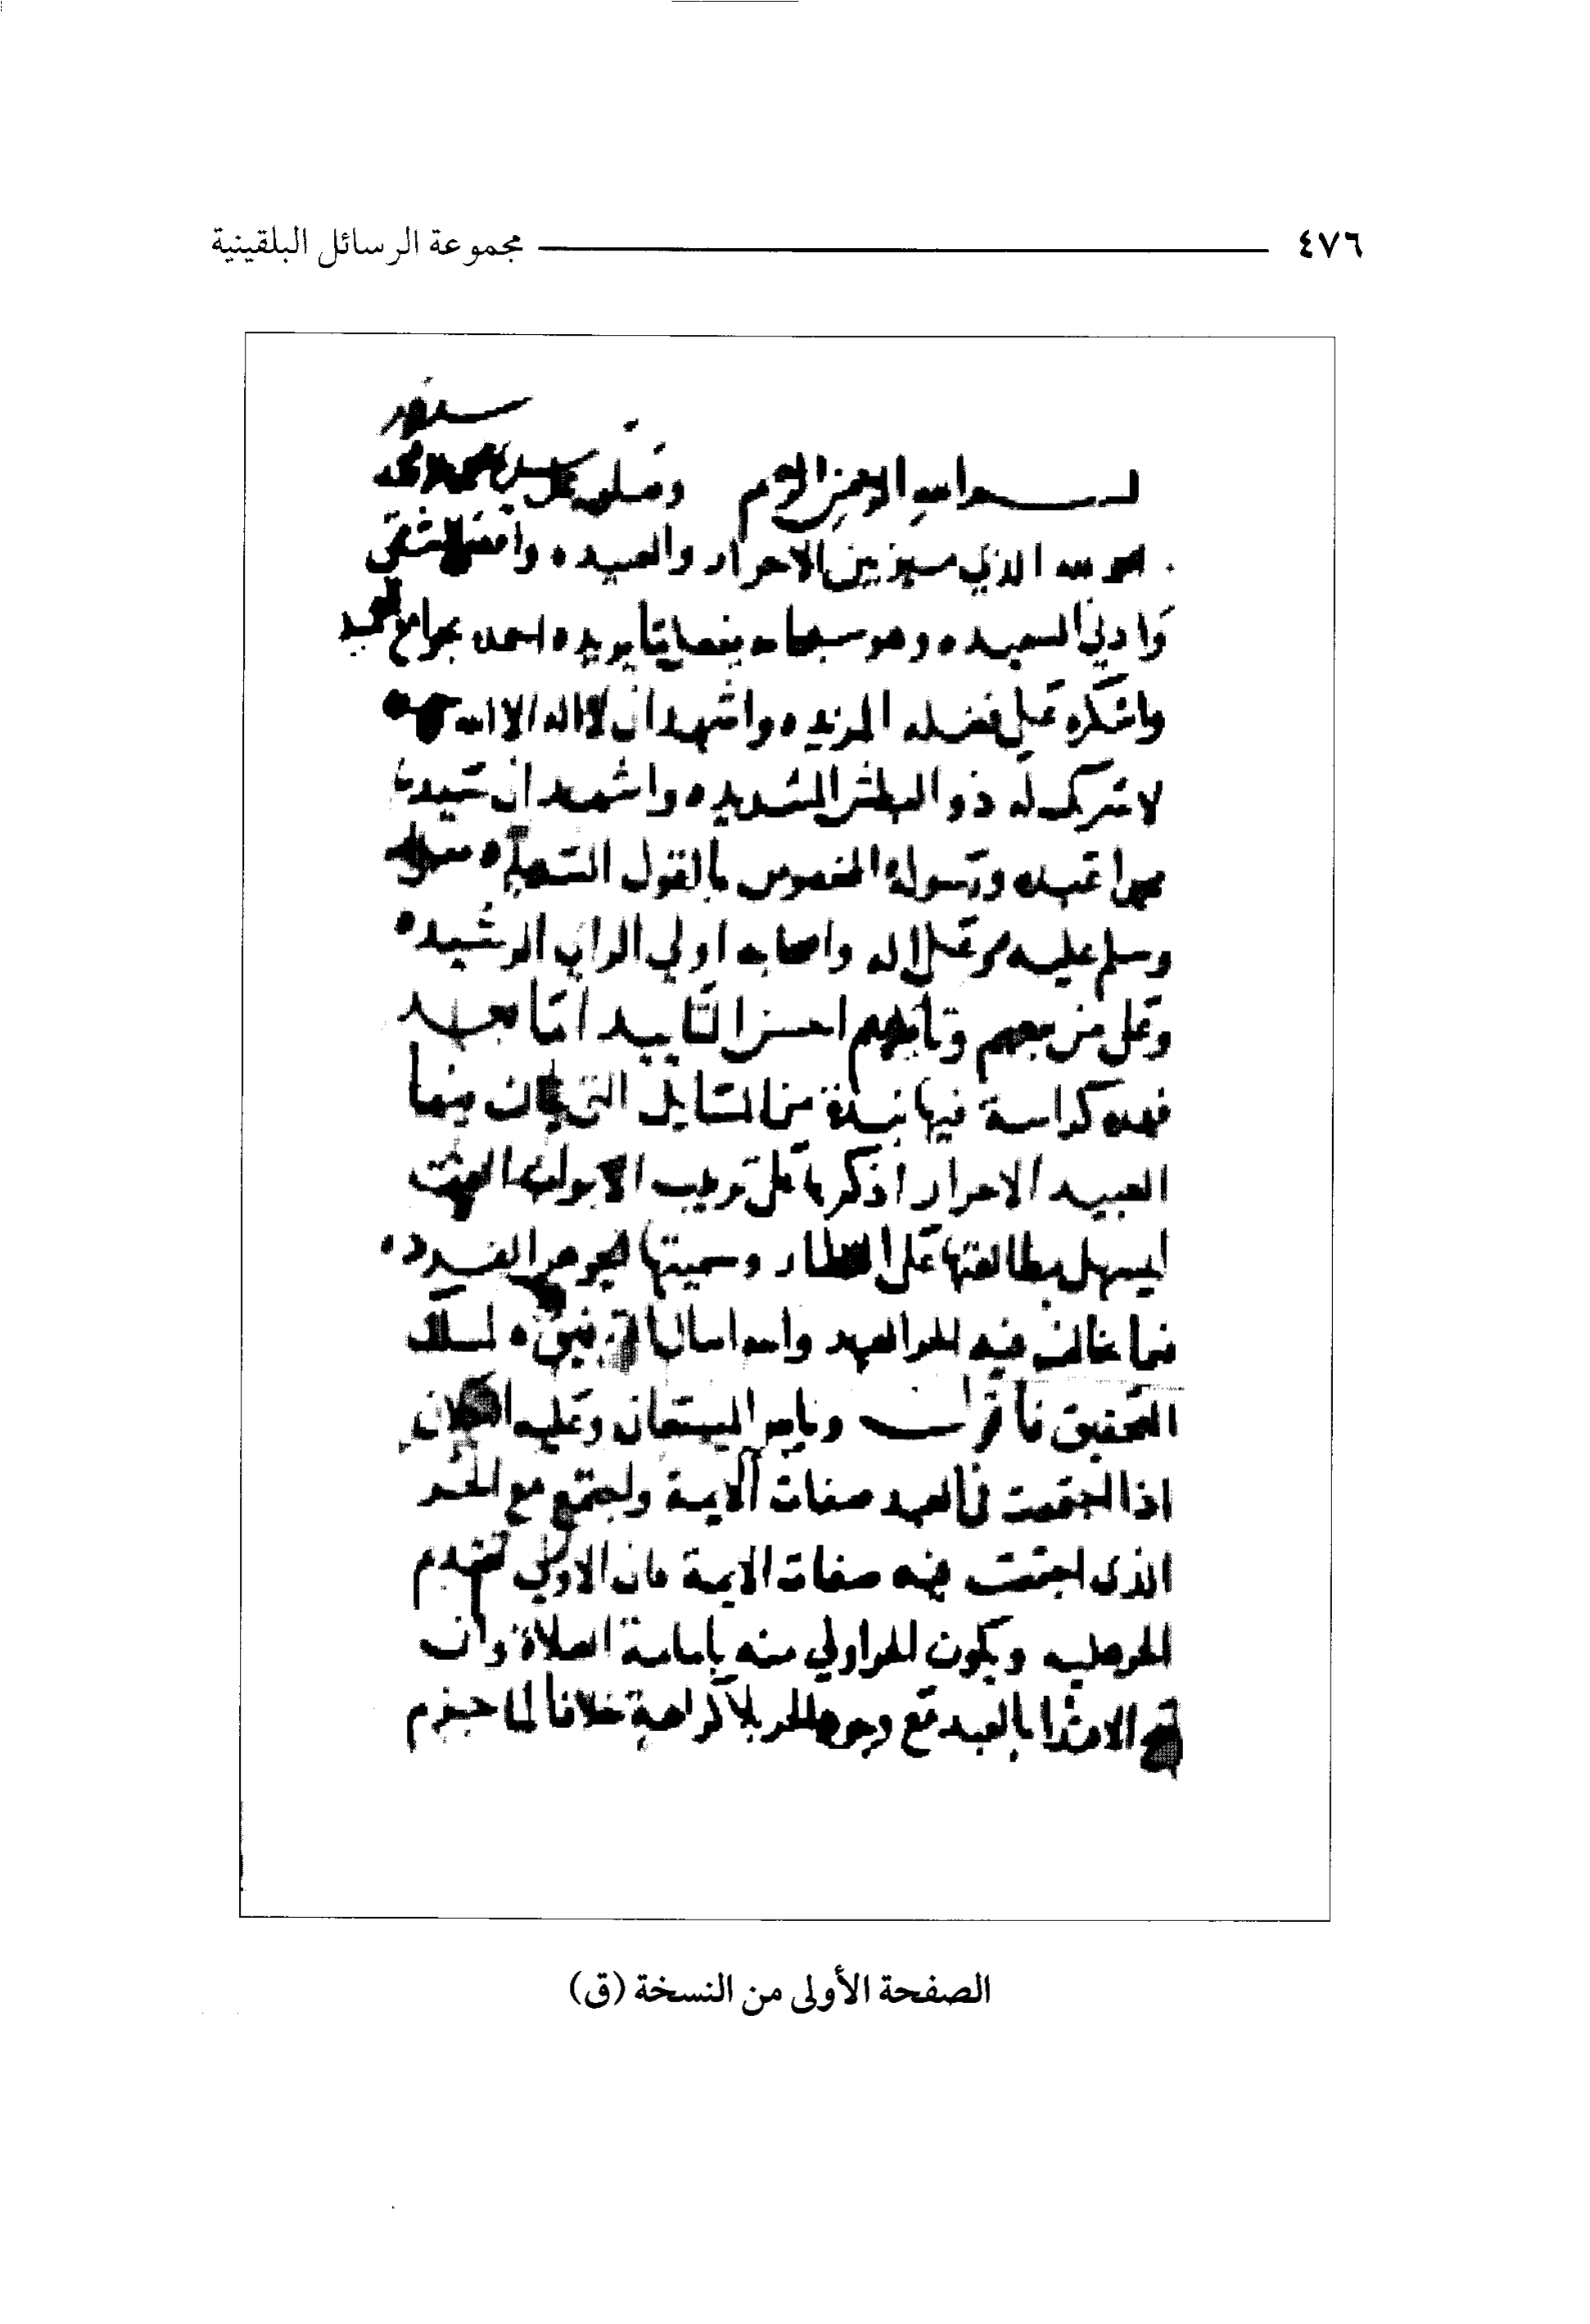 ٤٧٦ مجموعة الرسائل البلقينية
بسم الله الرحمن الرحيم وصلى الله على سيدنا محمد
الحمد لله الذي ميز بين الاحرار والعبيد وا
وهو سبحانه يفعل ما يريد احمده بجوامع
واشكره على فضله المزيد واشهد ان لا اله الا الله
لا شريك له ذو البطش الشديد واشهد ان سيدنا
محمدا عبده ورسوله المخصوص بالقول
وسلم عليه وعلى اله واصحابه اولي الراي الرشيد
وعلى من تبعهم وتابعهم احسن التاييد اما بعد
فهذه كراسة فيها نبذة من المسايل التي يخالف فيها
العبيد الاحرار اذكرها على ترتيب الابواب
ليسهل مطالعتها على النظار وسميتها الجوهر الفرد
فيما خالف فيه الحر العبد والله اسال لسلك
التحقيق وبالله المستعان وعليه التكلان
اذا اجتمعت في العبد صفات الايمة واجتمع مع الحر
الذي اجتمعت فيه صفات الايمة فان الاولى تقدم
الحر عليه ويكون الحر اولى منه بامامة الصلاة وان
الاقتدا بالعبد مع وجود الحر بلا كراهة خلافا لما جزم
الصفحة الأولى من النسخة (ق)